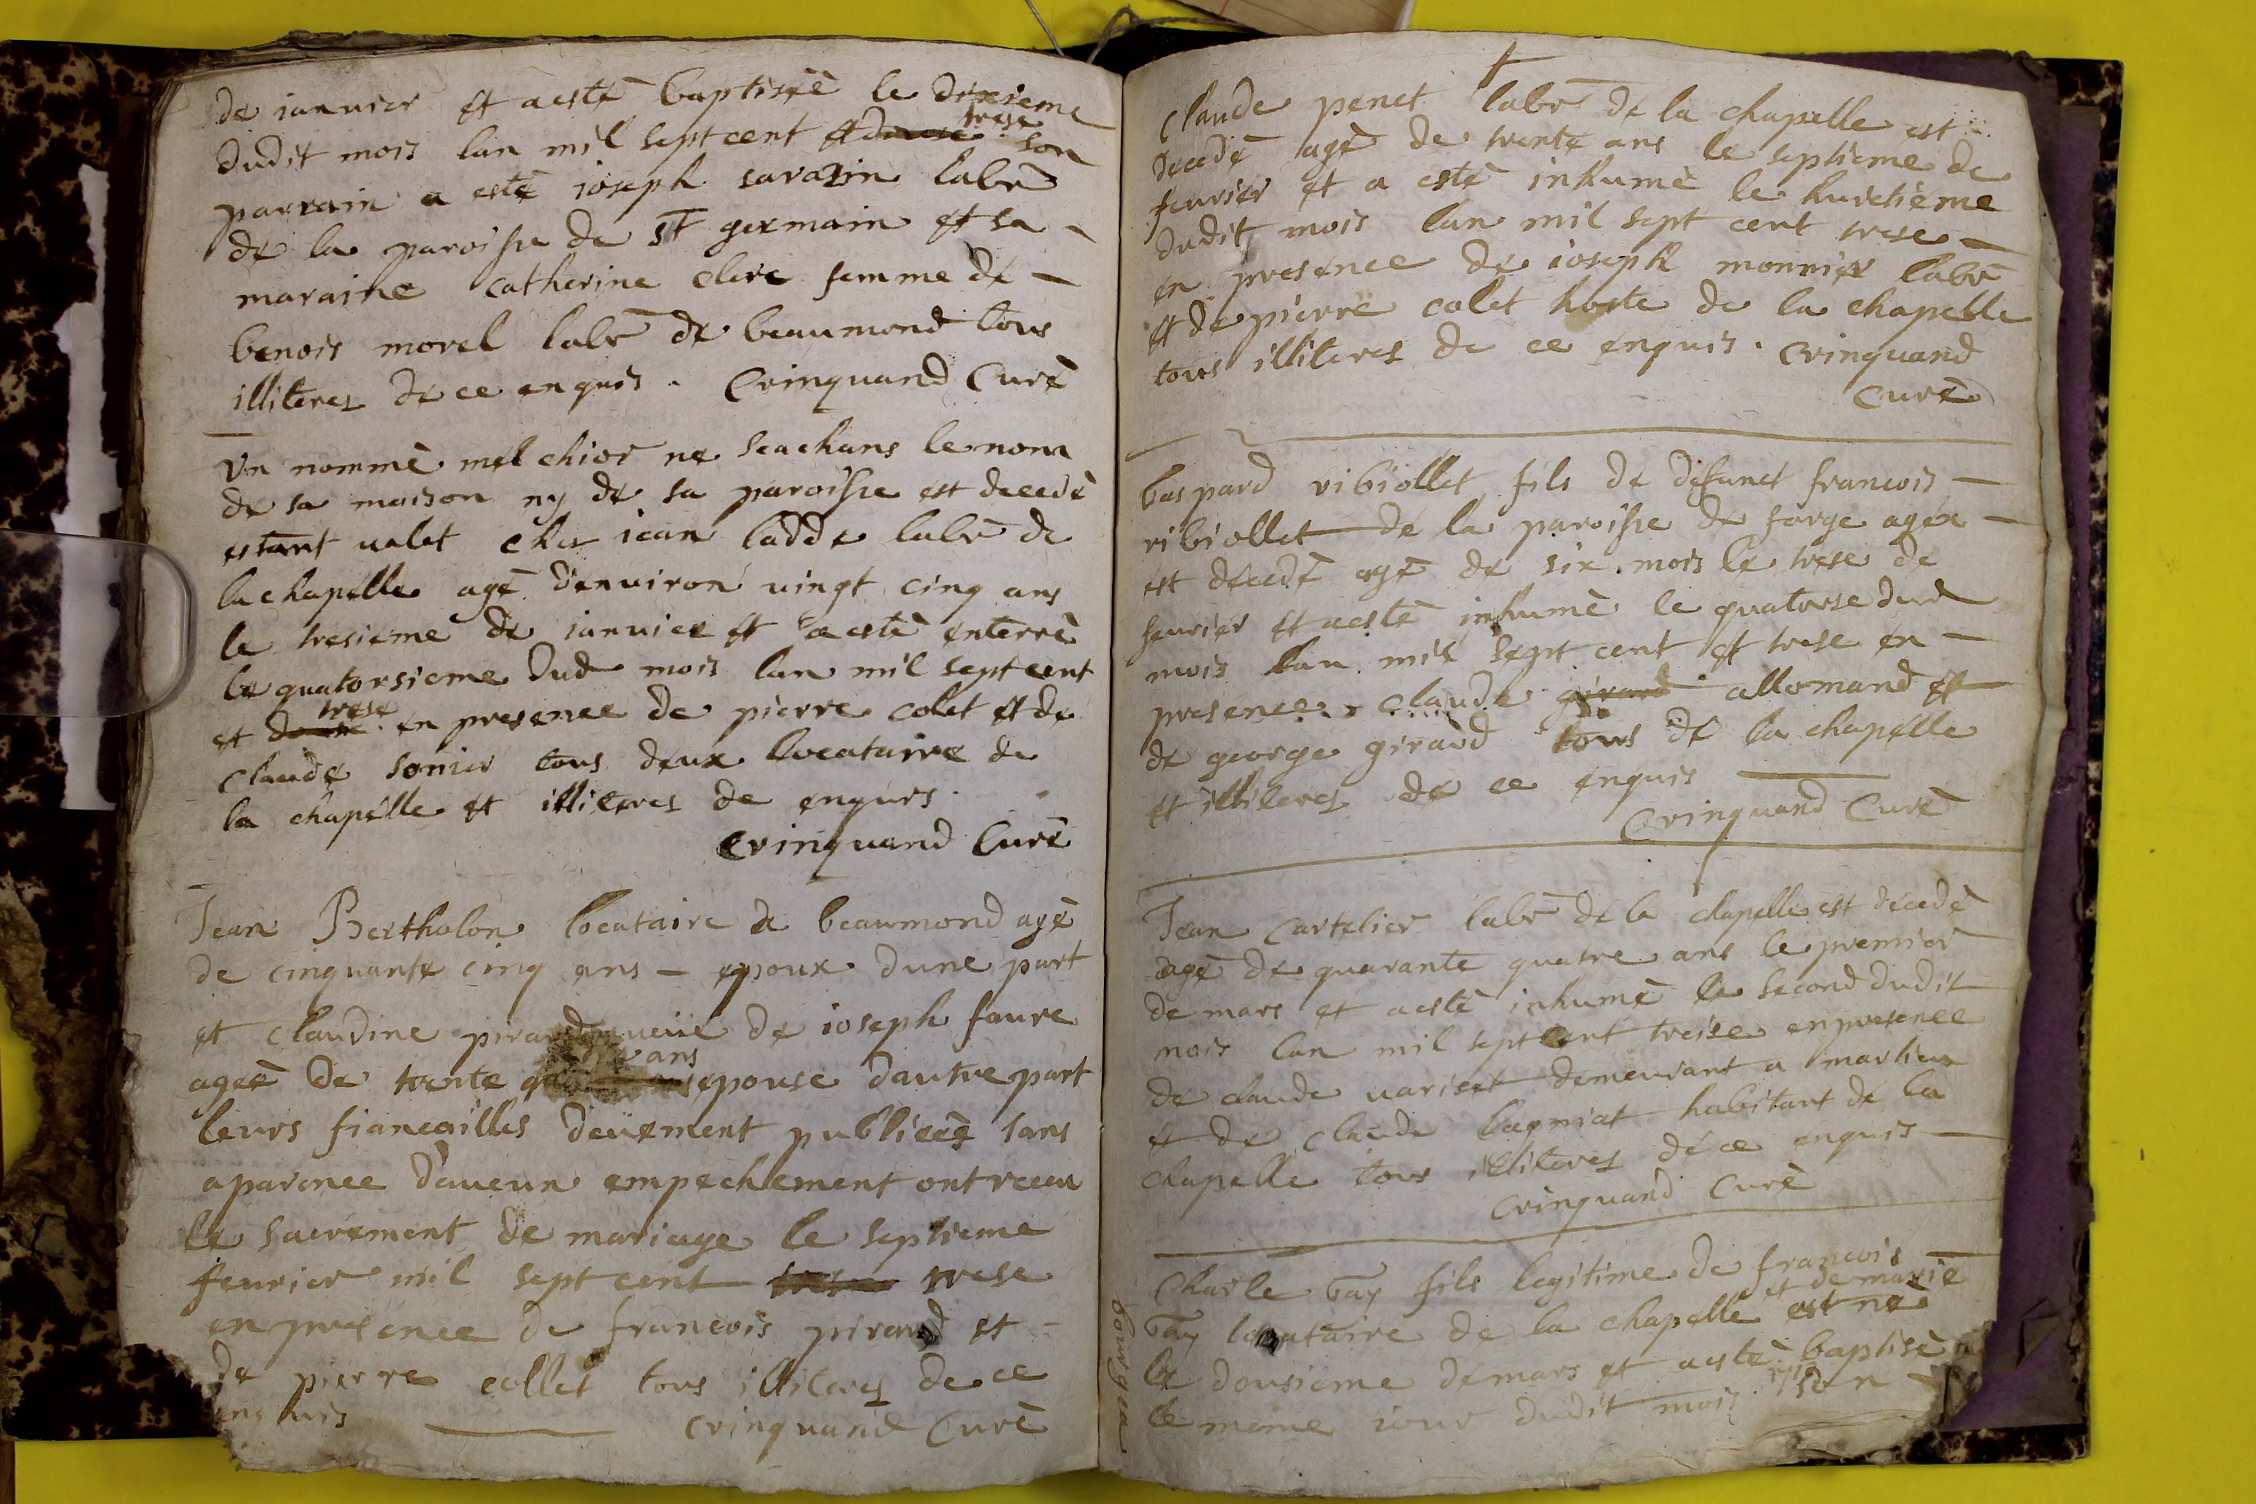 de ianvier et a esté baptiséé le dixieme
dudit mois lan mil sept cent et douse trese son
parrain a esté ioseph sarazin labr
de la paroisse de st germain et sa -
maraine catherine clere femme de -
benois morel labr de beaumond tous
illiteres de ce enquis. Crinquand Curé
Un nommé melchior ne scachans le nom
de sa maison ny de sa paroisse est decedé
estant valet ches iean ladde labr de
la chapelle agé denviron vingt cinq ans
le tresieme de ianvier et a esté enterré
le quatorsieme dud mois lan mil sept cent
et douse trese en presence de pierre colet et de
claude sonier tous deux locataire de
la chapelle et illiteres de enquis.
Crinquand Curé
Jean Bertholon locataire de beaumond agé
de cinquante cinq ans - epoux dune part
et claudine pirard veüe de ioseph faure
agée de trente ans epouse dautre part
leurs fiancailles deüement publiees sans
aparence daucun empechement ont receu
le sacrement de mariage le septieme
fevrier mil sept cent trese
en presence de francois pirard et -
de pierre collet tous illiteres de ce
enquis crinquand Curé
Claude penet labr de la chapelle est
decedé agé de trente ans le septieme de
fevrier et a esté inhumé le huictiéme
dudit mois lan mil sept cent trese -
en presence de ioseph monnier labr
et de pierre colet hoste de la chapelle
tous illiteres de ce enquis. crinquand
Curé
baspard ribiollet fils de defunct francois -
ribiollet de la paroisse de forge agée -
est decedé agé de six mois le trese de
fevrier et a esté inhumé le quatorse dud
mois lan mil sept cent et trese en -
presence claude girard allomand et
de george girard tous de la chapelle
et illiteres de ce enquis
Crinquand Curé
Jean cartelier labr de la chapelle est decedé
agé de quarante quatre ans le premier
de mars et a esté inhumé le second dudit
mois lan mil sept cent treise en presence
de claude variset demeurant a marlieu
et de claude bagniat habitant de la
chapelle tous illiteres de ce enquis
crinquand Curé
Charle bay fils legitime de francois
bay locataire de la chapelle et de marie est né
bourgea
le dousieme de mars et a esté baptisé
le méme iour dudit mois son